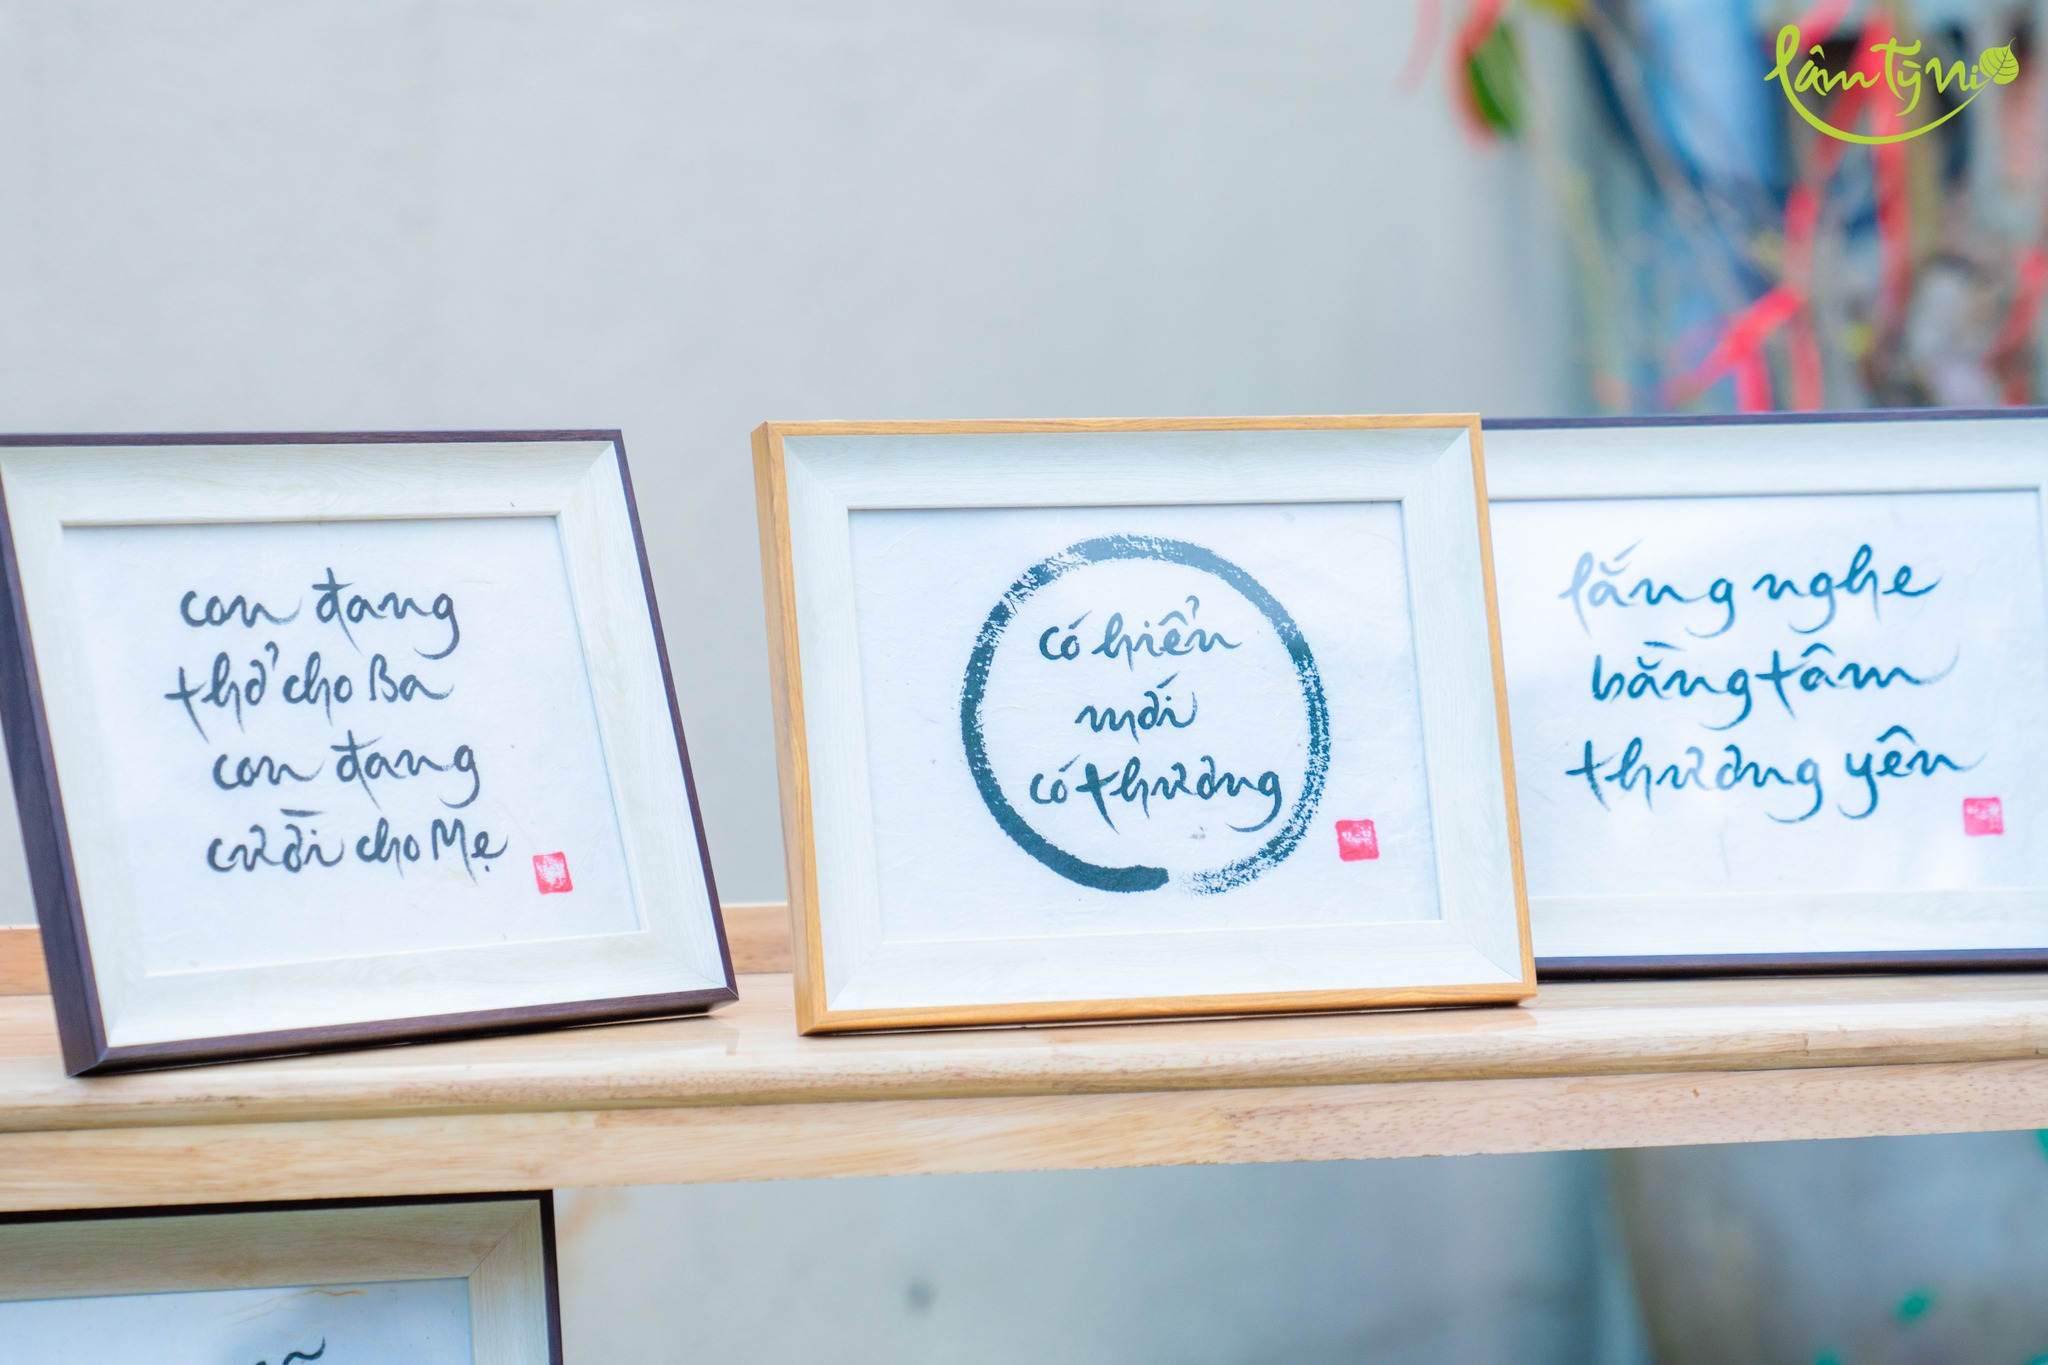 Lâm Tỳ Ni
con đang
thở cho Ba
con đang
cười cho Mẹ
có hiểu
mới
có thương
lắng nghe
bằng tâm
thương yên